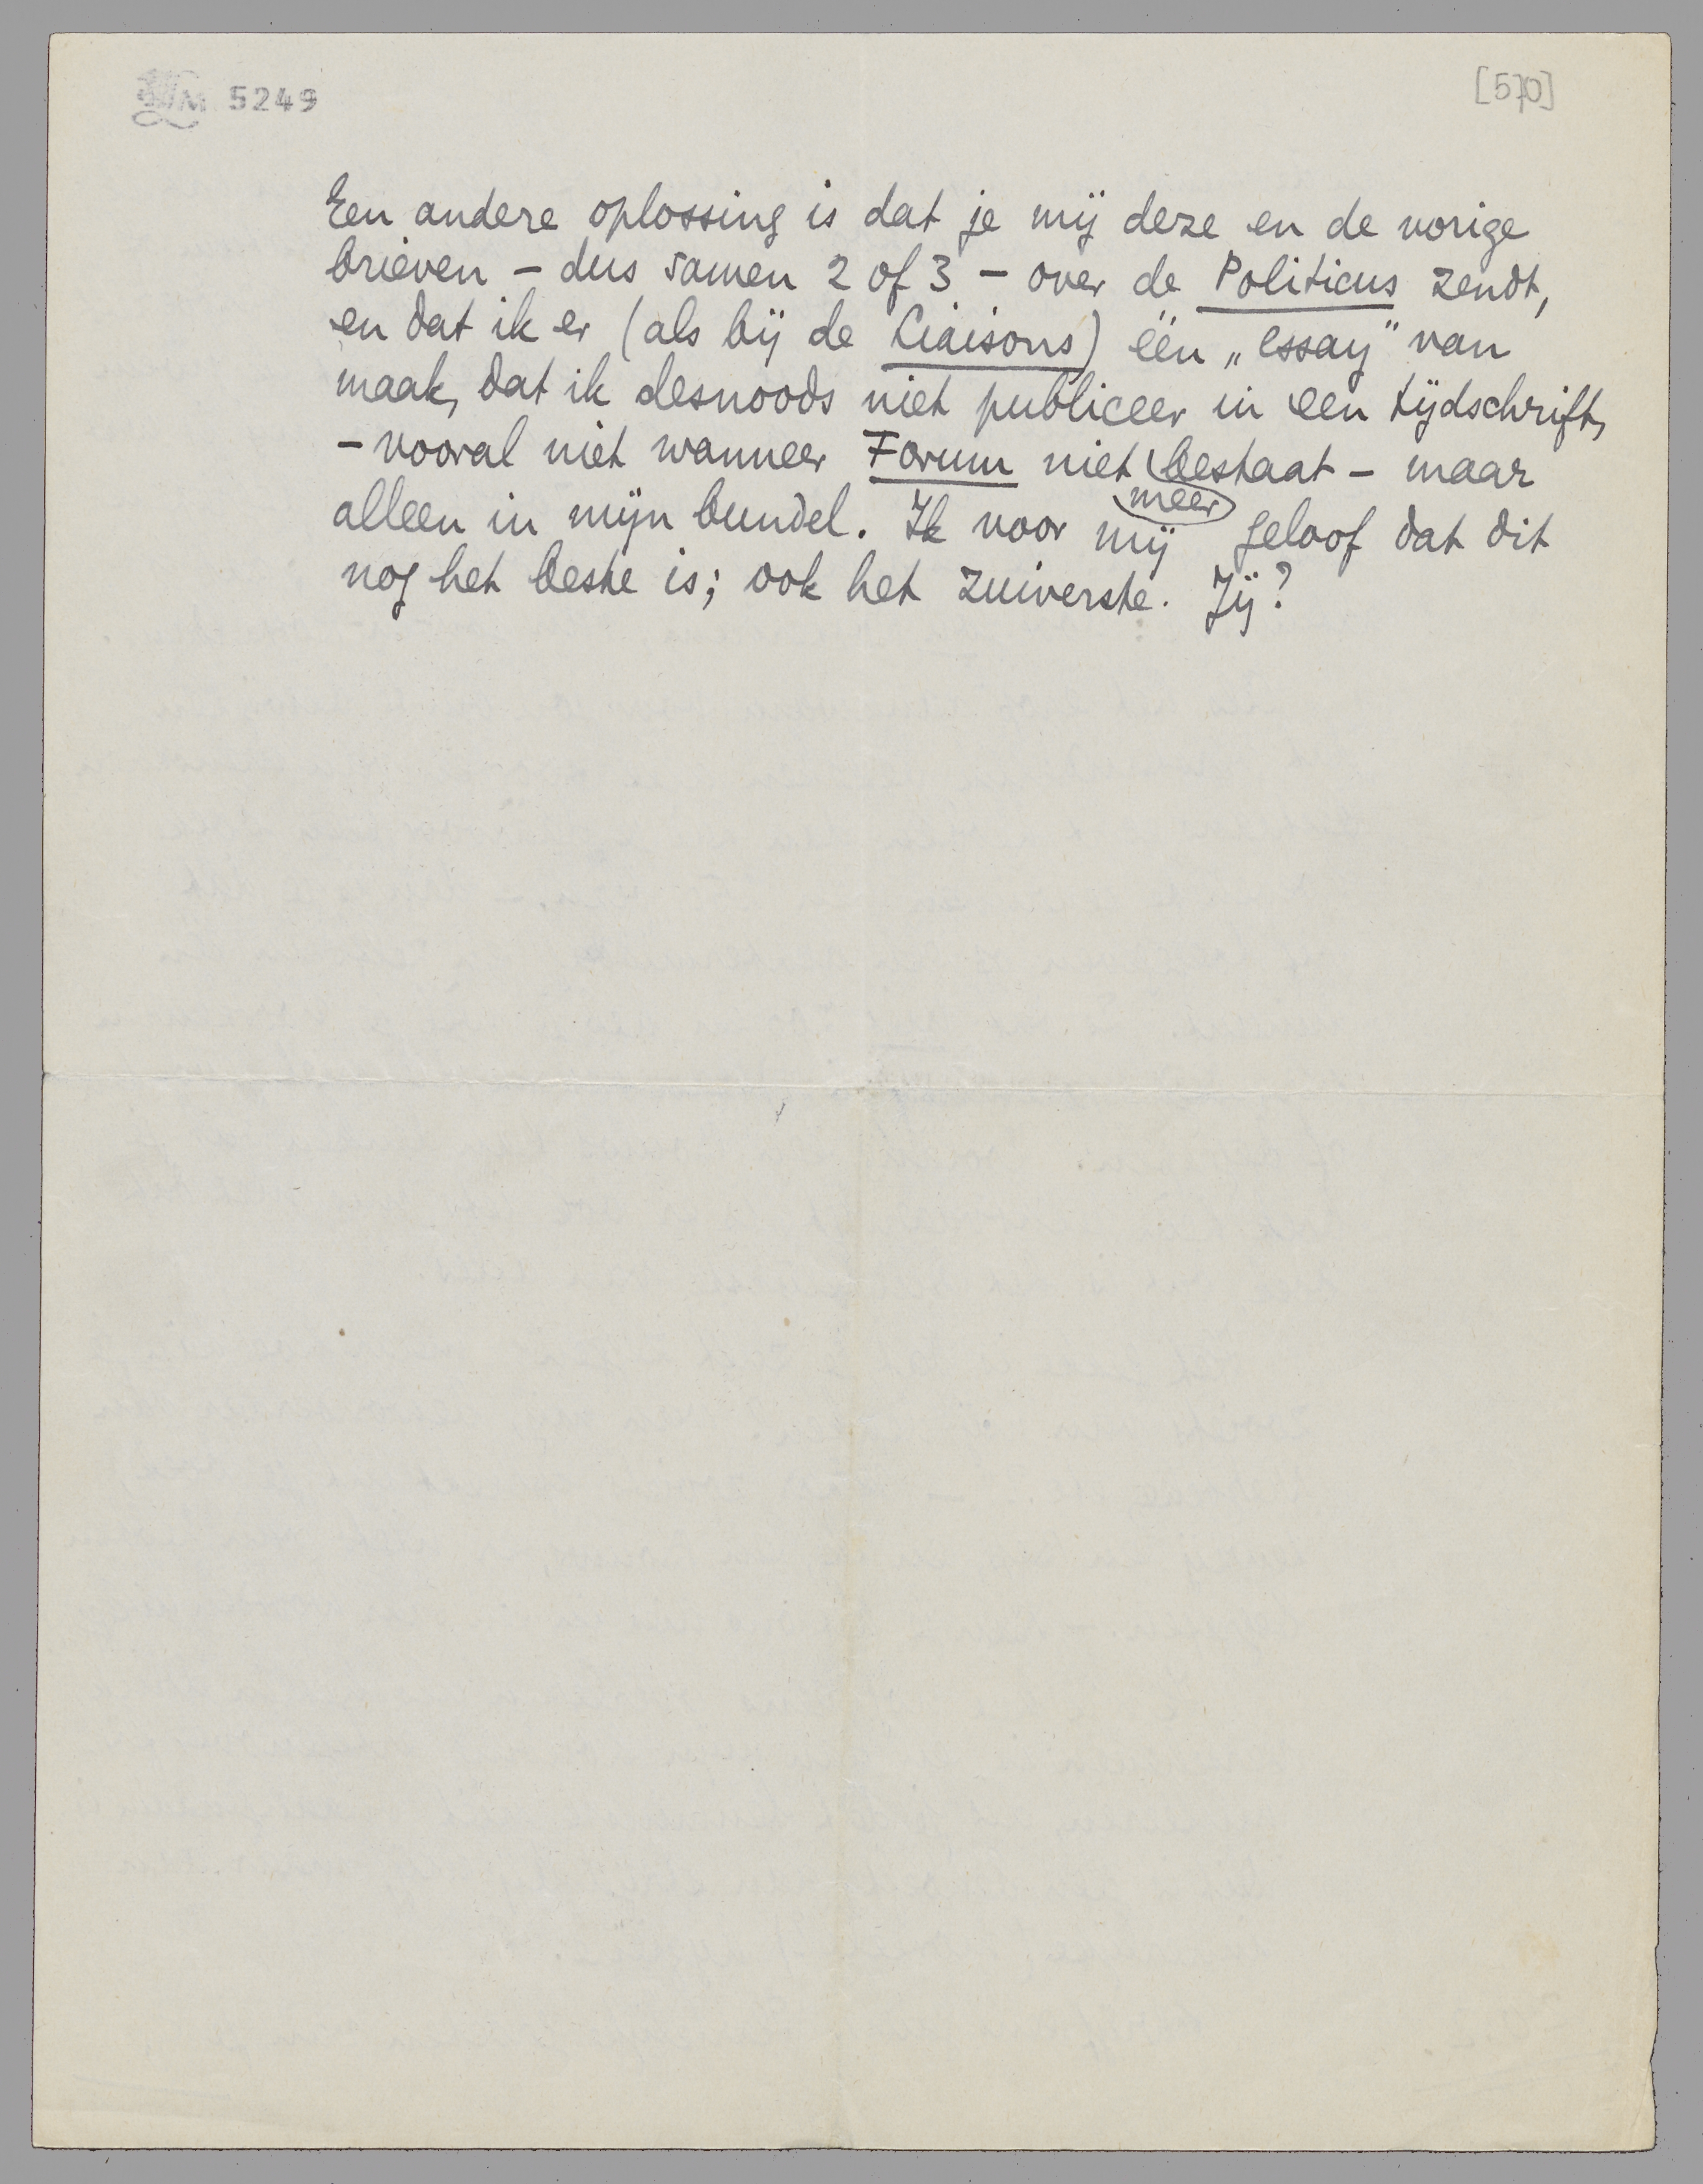 5249
[570]
Een andere oplossing is dat je mij deze en de vorige
brieven – dus samen 2 of 3 – over de Politicus zendt,
en dat ik er (als bij de Liaisons) één „essay” van
maak, dat ik desnoods niet publiceer in een tijdschrift,
– vooral niet wanneer Forum niet meer bestaat – maar
alleen in mijn bundel. Ik voor mij geloof dat dit
nog het beste is; ook het zuiverste. Jij?